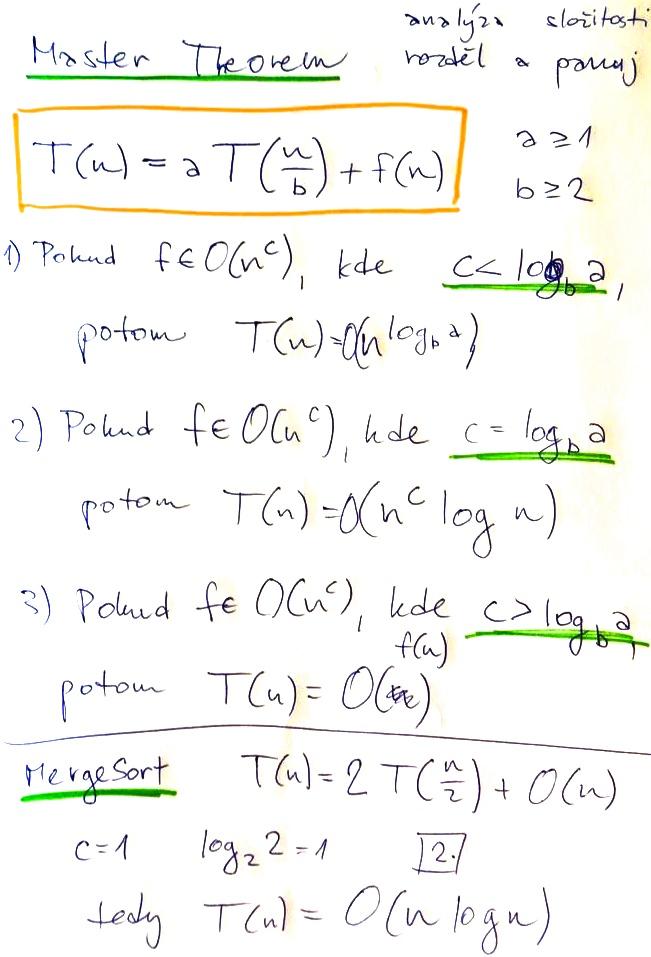 analýza složitosti
Master Theorem rozděl a panuj
T(n) = a T(n/b) + f(n)
a ≥ 1
b ≥ 2
1) Pokud f ∈ O(n^c), kde c < log_b a,
potom T(n) = O(n^{log_b a})
2) Pokud f ∈ O(n^c), kde c = log_b a
potom T(n) = O(n^c log n)
3) Pokud f ∈ O(n^c), kde c > log_b a,
f(n)
potom T(n) = O( )
MergeSort T(n) = 2 T(n/2) + O(n)
c = 1 log_2 2 = 1 2.
tedy T(n) = O(n log n)